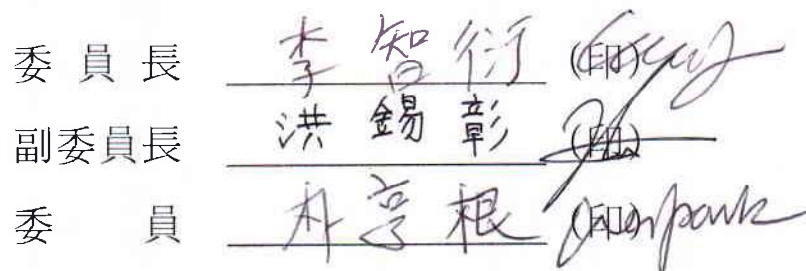 委員長 李智衍 (印)
副委員長 洪錫彰 (印)
委員 朴亨根 (印)